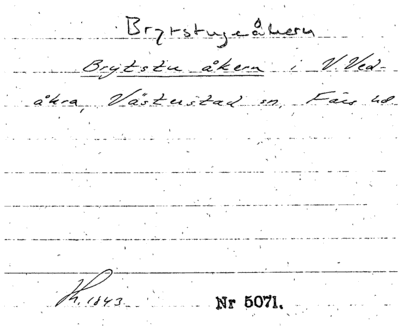 Brytstugeåkern
Brytstu åkern i V Ved-
åkra, Västerstad sn, Färs hd
Kr. 1843
Nr 5071.